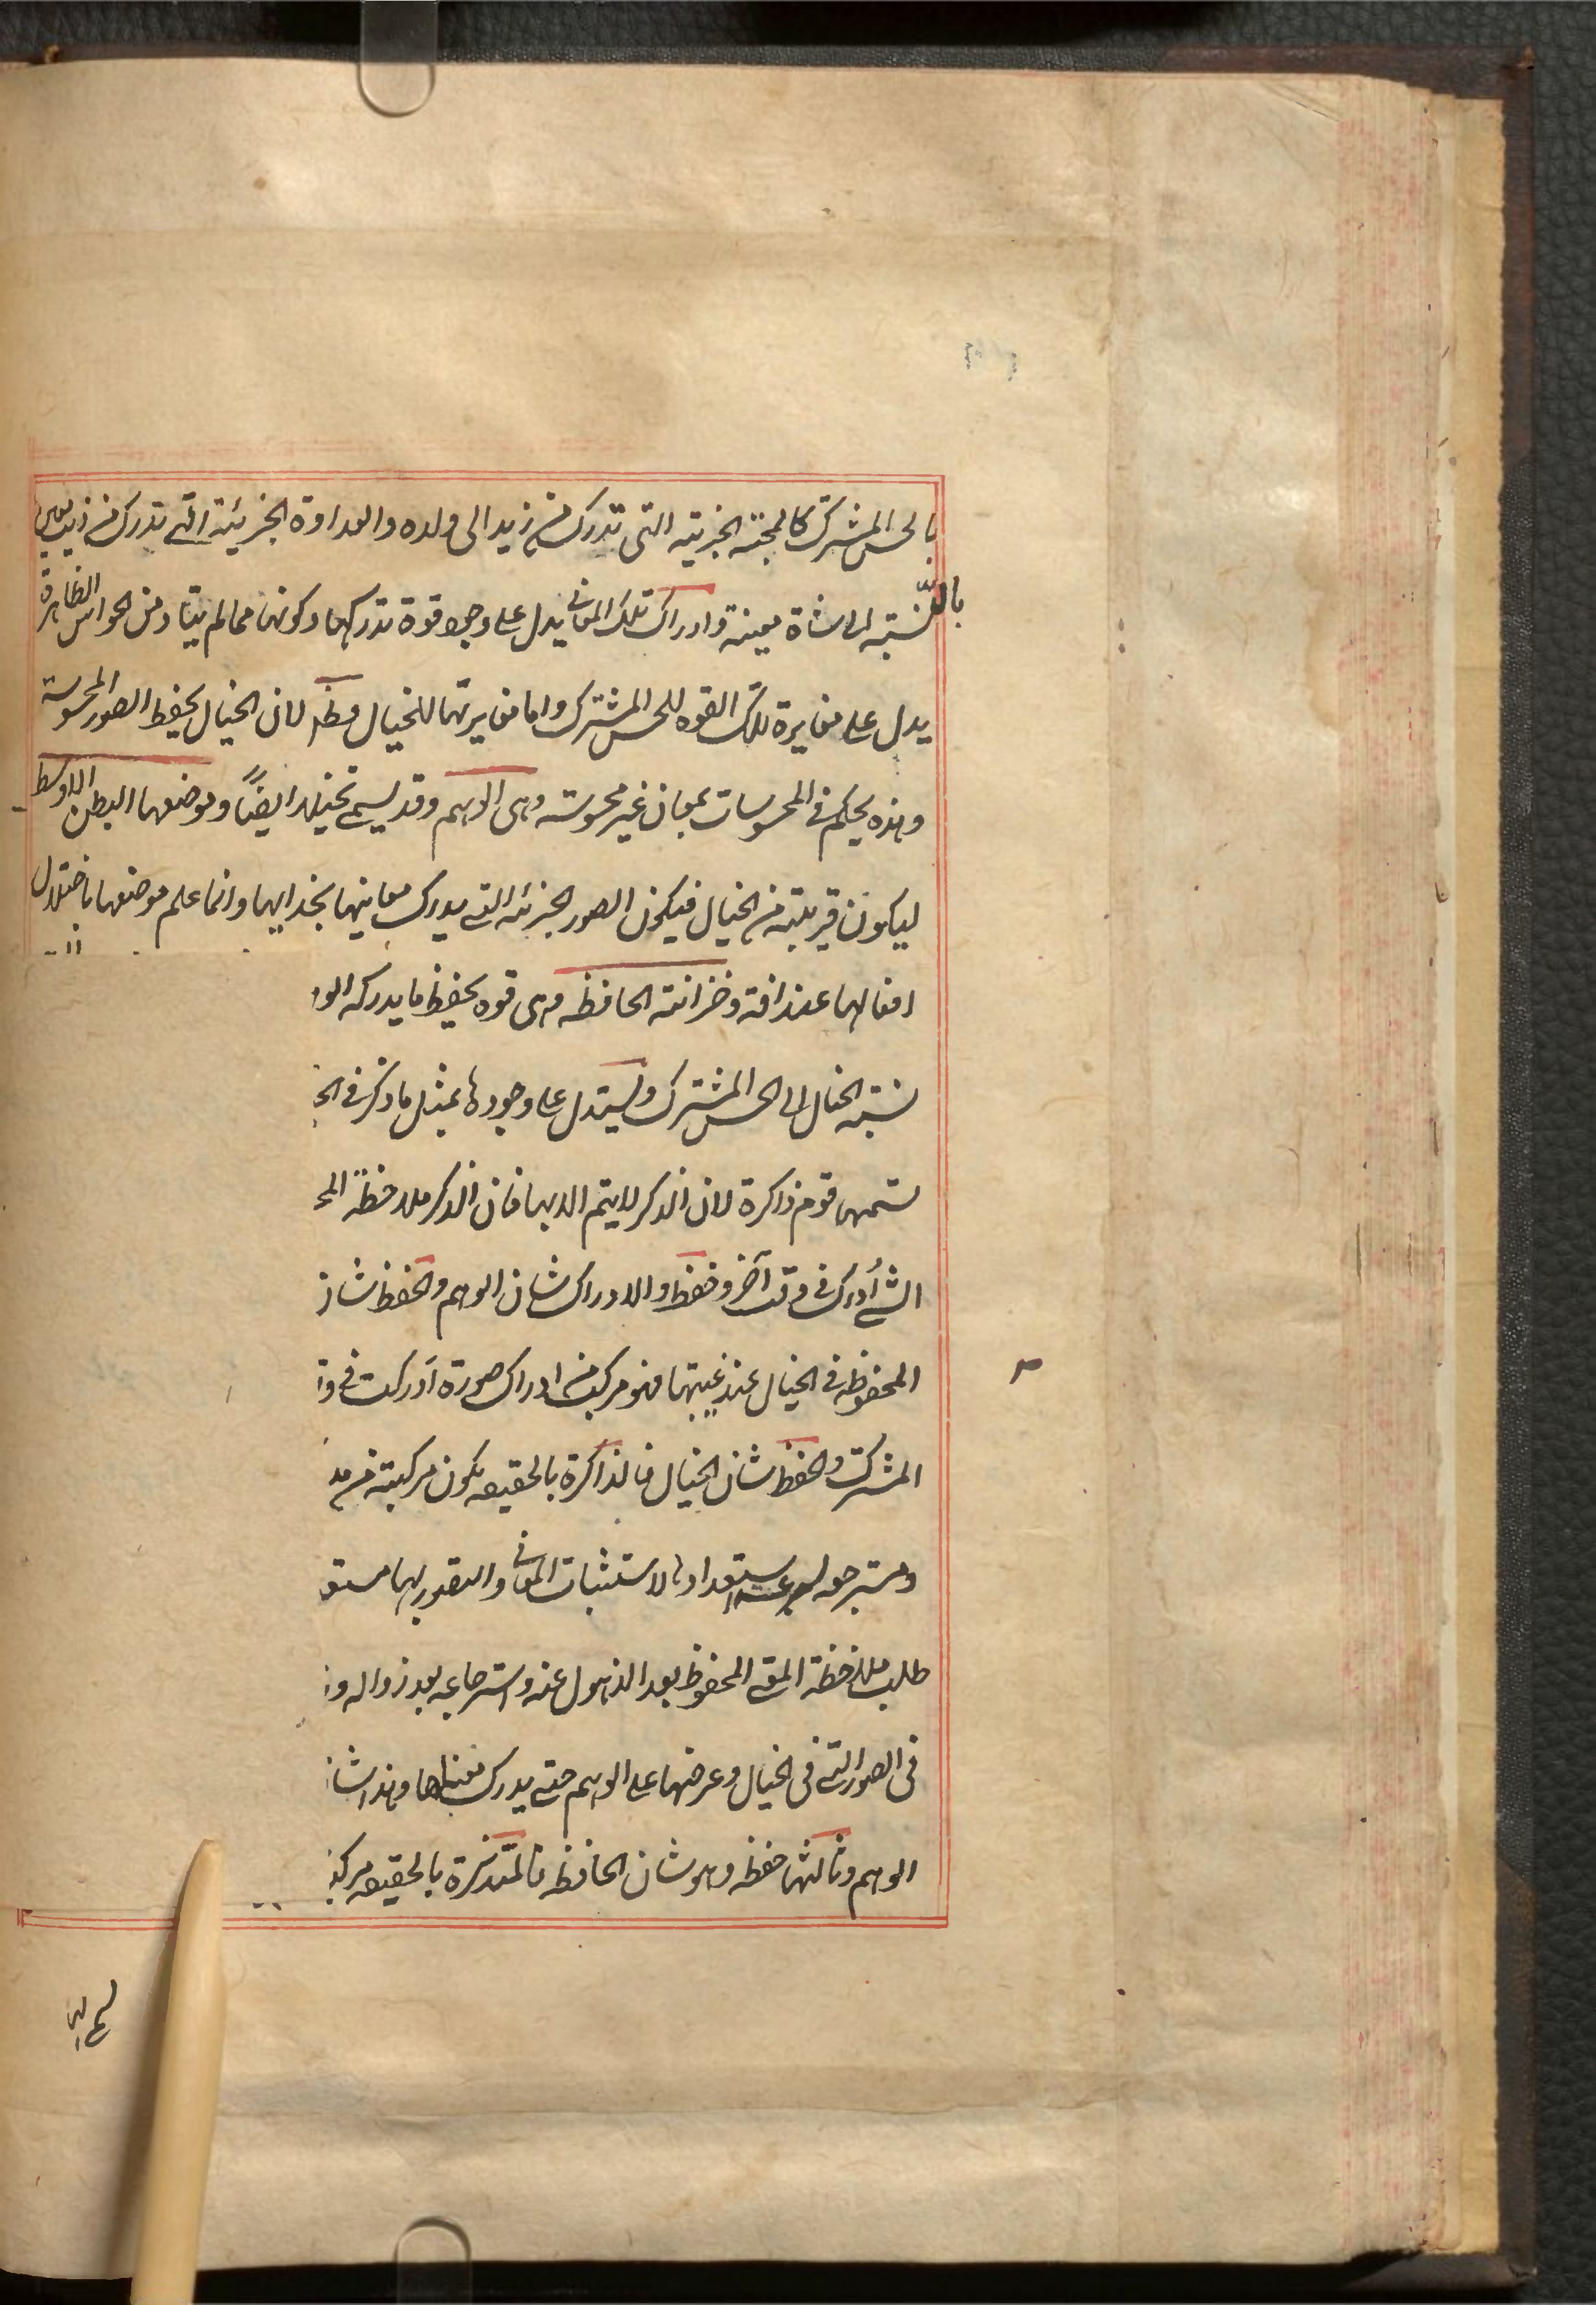 بالحس المشترك كالمحبة الجزئية التى تدرك من زيد الى ولده والعداوة الجزئية التى تدرك من ذيب معين
بالنسبة الى شاة معينة وادراك تلك المعانى يدل على وجود قوة تدركها وكونها مما لم يتاد من الحواس الظاهرة
يدل على مغايرة تلك القوه للحس المشترك واما مغايرتها للخيال فظ لان الخيال يحفظ الصور المحسوسة
وهذه يحكم فى المحسوسات بمعان غير محسوسه وهى الوهم وقد يسمى تخيلا ايضًا وموضعها البطن الاوسط
ليكون قريبة من الخيال فيكون الصور الجزئه التى يدرك معانيها بحذايها وانما علم موضعها باختلال
افعالها عند افة وخزانته الحافظه وهى قوه يحفظ ما يدركه الو
نسبة الخيال الى الحس المشترك ويستدل على وجودها بمثل ما ذكر فى الخ
تسميها قوم ذاكرة لان الذكر لا يتم الا بها فان الذكر ملاحظة المح
الشئ أدرك فى وقت آخر وحفظ والادراك شان الوهم والحفظ شان
المحفوظه فى الخيال عند غيبتها فهو مركب من ادراك صورة أدركت فى و
المشترك والحفظ شان الخيال فالذاكرة بالحقيقه يكون مركبة من مد
ومسترجعه لسرعة استعدادها لاستثبات المعانى والتصور بها مستع
طلب ملاحظة المعنى المحفوظ بعد الذهول عنه واسترجاعه بعد زواله و
فى الصور التى فى الخيال وعرضها على الوهم حتى يدرك معناها وهذا شا
الوهم وثالثها حفظه وهو شان الحافظه فالمتذكرة بالحقيقه مركبة